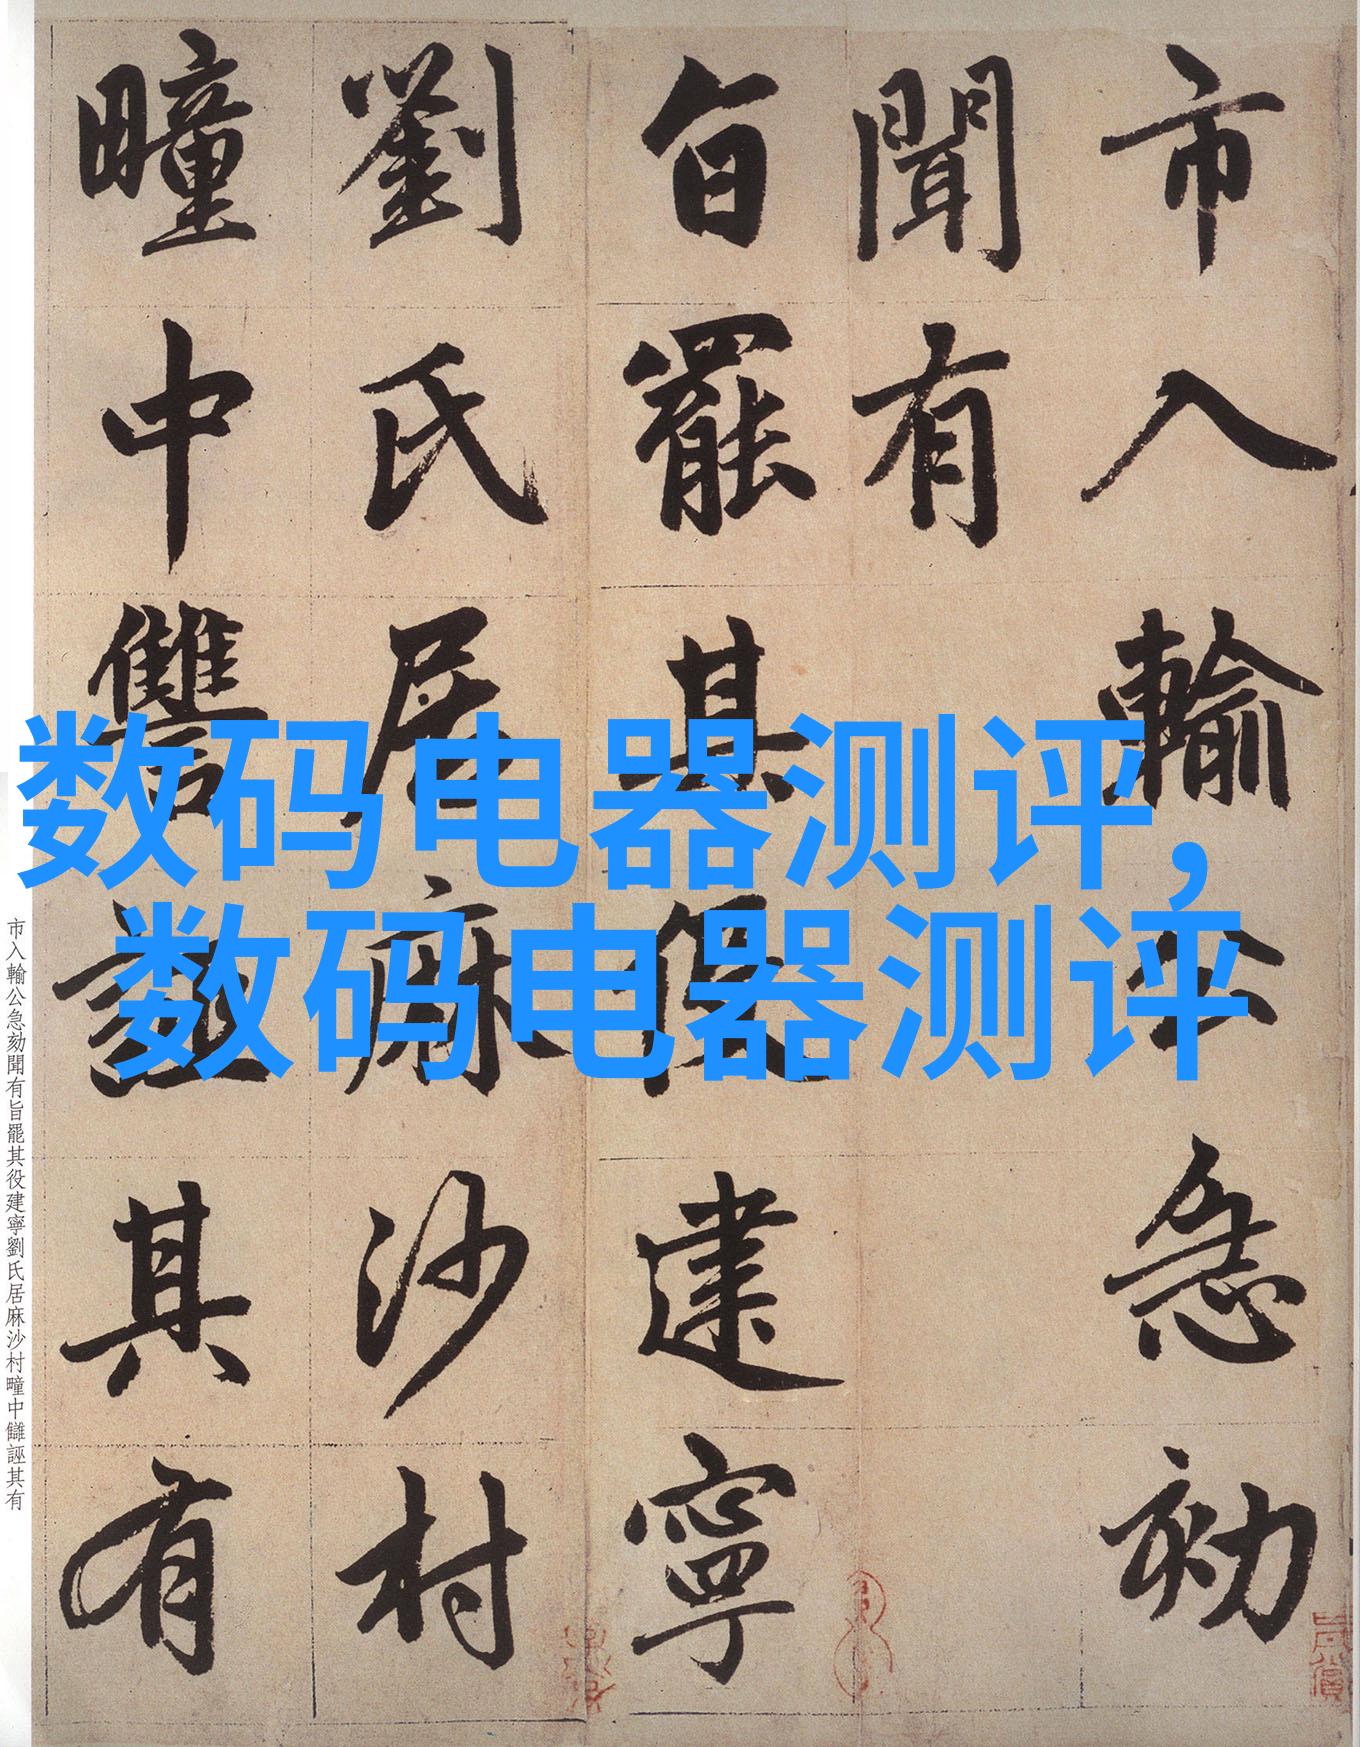 市入輸公急劾
聞有
旨罷其役建寧
劉氏居麻沙村
疃中讐誣其有
数码电器测评，
数码电器测评
市入輸公急劾聞有旨罷其役建寧劉氏居麻沙村疃中讎誣其有